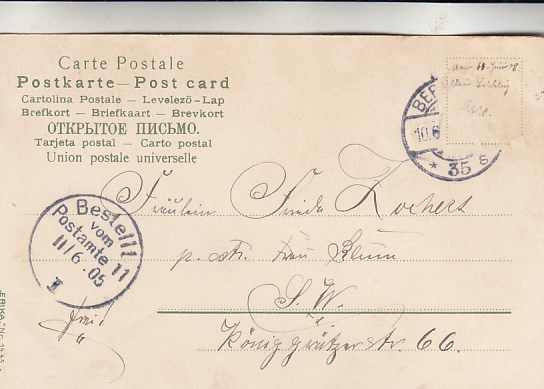 Carte Postale
Postkarte — Post card
Cartolina Postale — Levelező-Lap
Brefkort — Briefkaart — Brevkort
ОТКРЫТОЕ ПИСЬМО.
Tarjeta postal — Carto postal
Union postale universelle
BER
10.6
* 35 g
Bestellt
vom
Postamte 11
11/6.05
II
Fräulein Frida Kochers
p. adr. Frau Blum
S. W.
Königgrätzerstr. 66.
frei
ERIKA